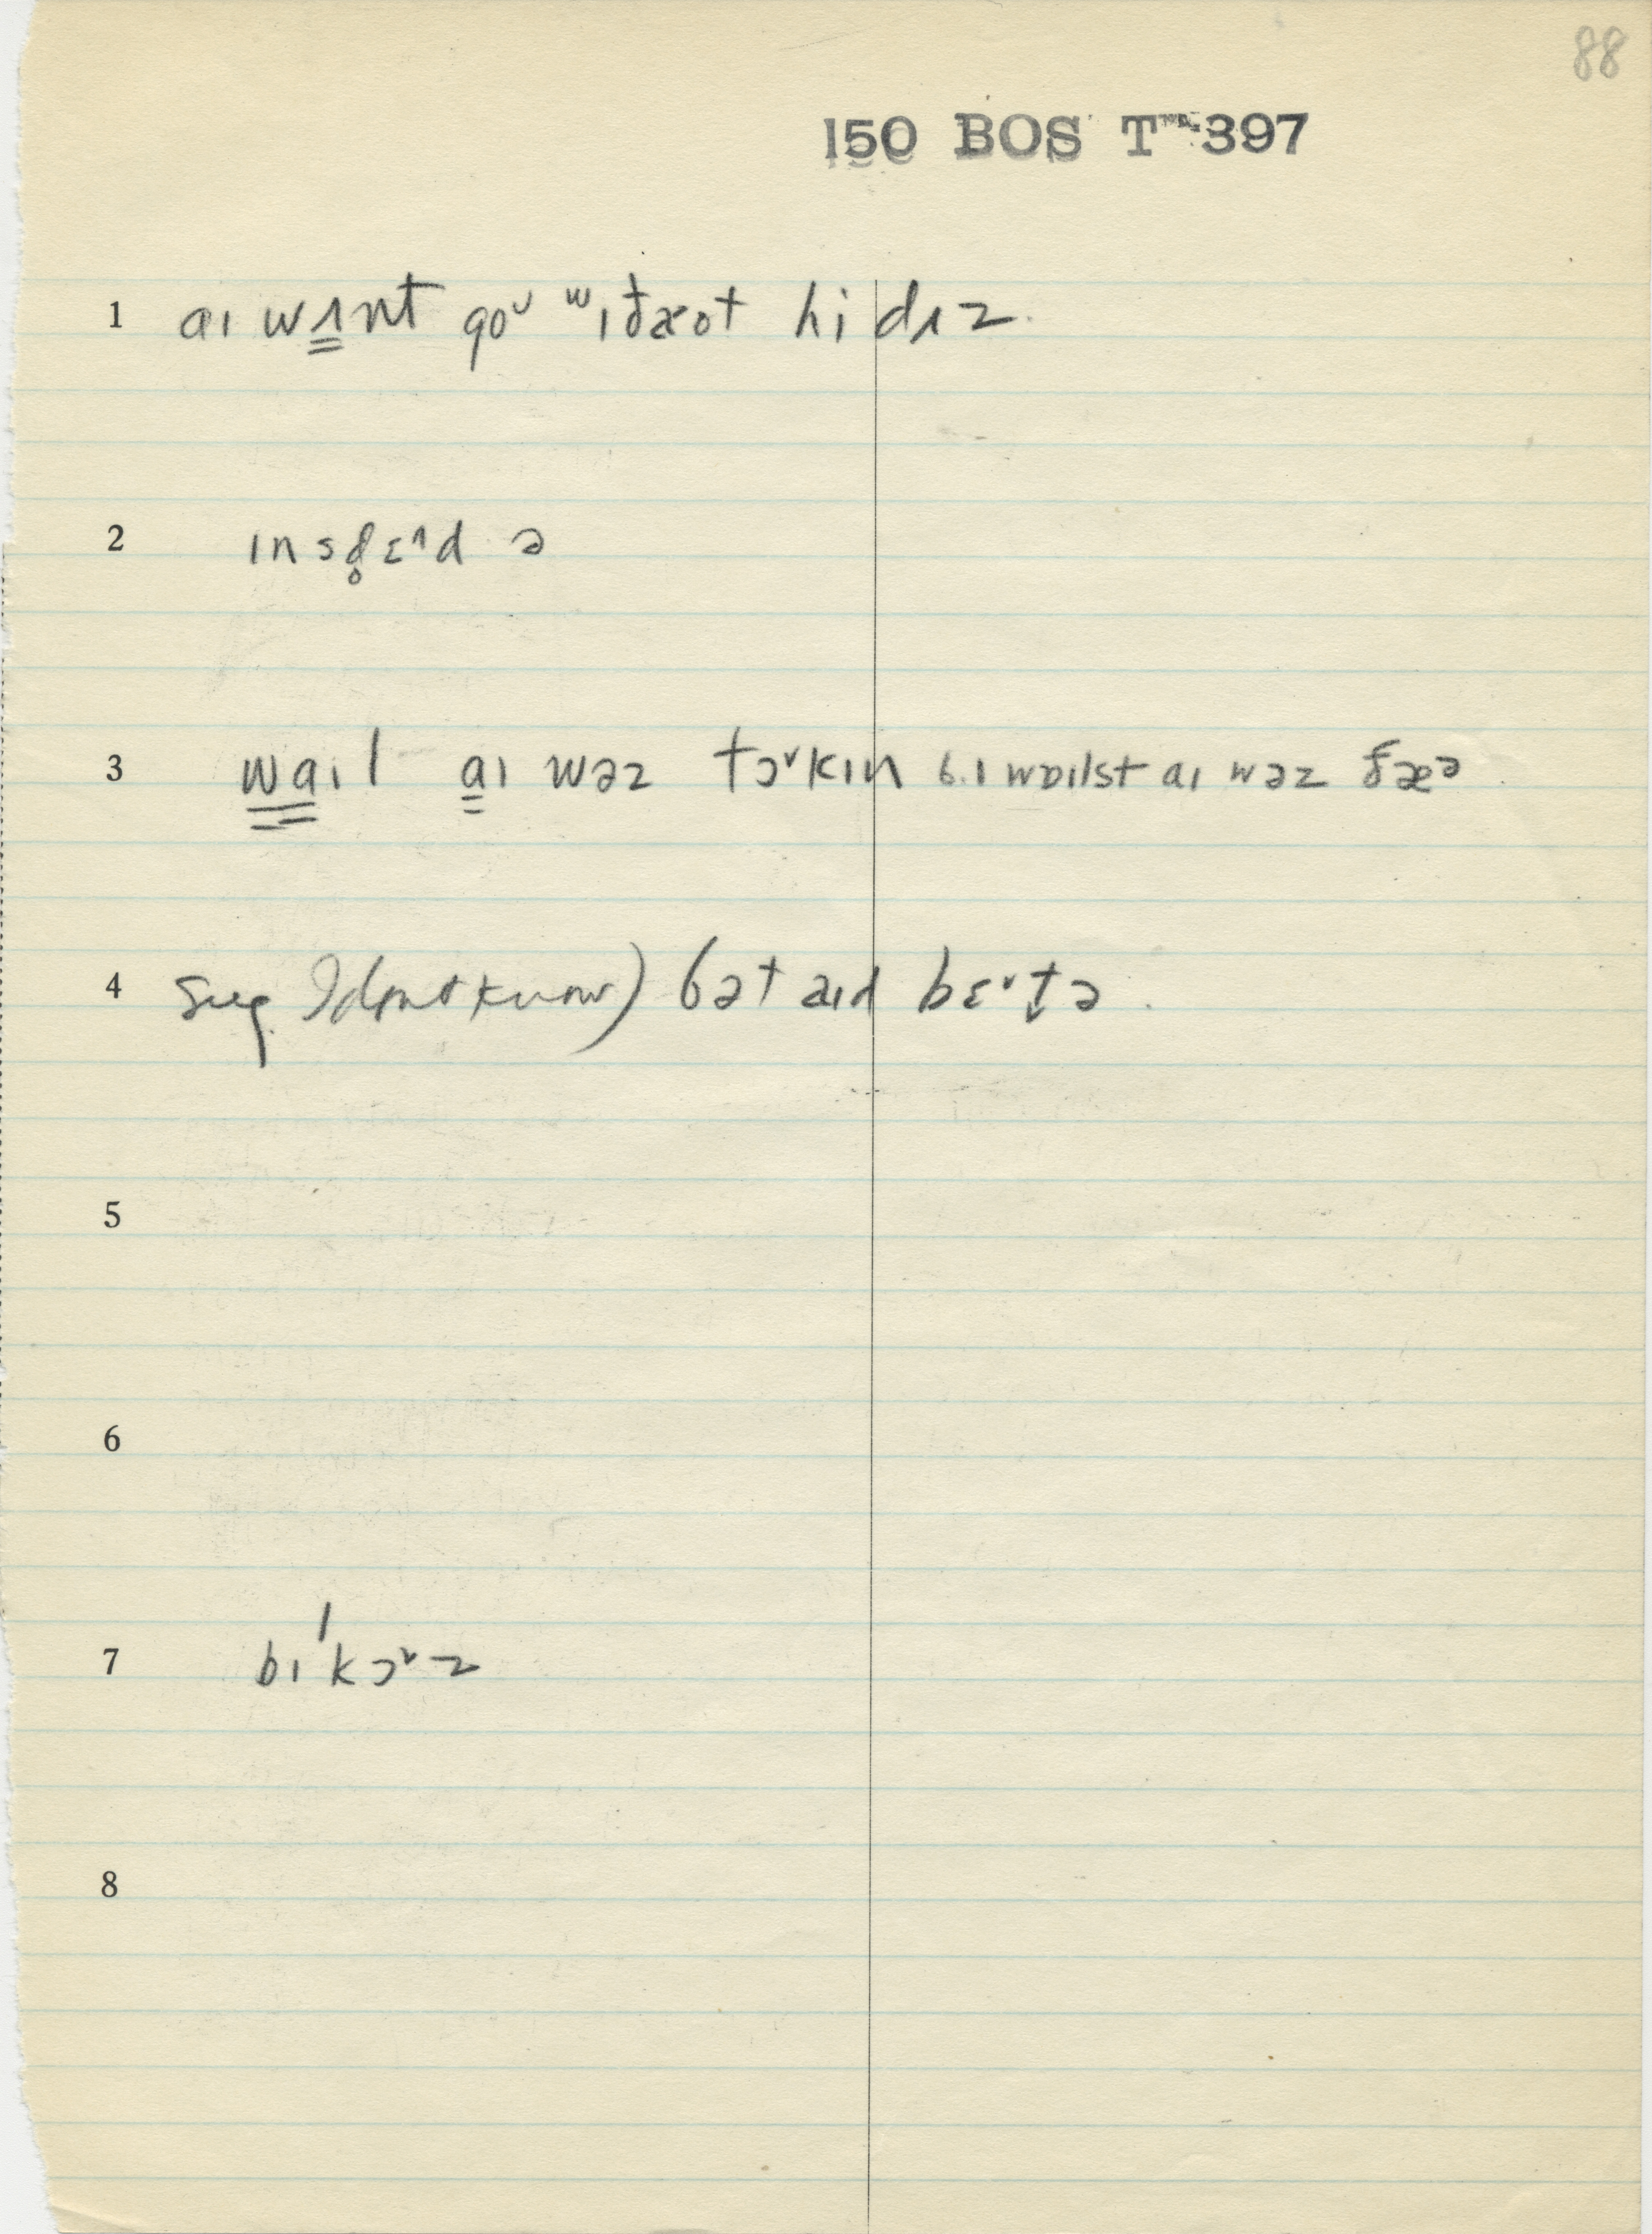 88
150 BOS TWP. 397
1 aɪ wʌnt goᴜ ʷɪðæot hi dʌz.
2 ɪn sd̥ɛᶦd ə
3 waɪl aɪ wəz tɔ˅kɪn b.ɪ wɒɪlst aɪ wəz ðæᵊ
4 sug. I don't know) ðət aɪd bɛ˅t̬ə.
5
6
7 bɪˈkɔ˅z
8